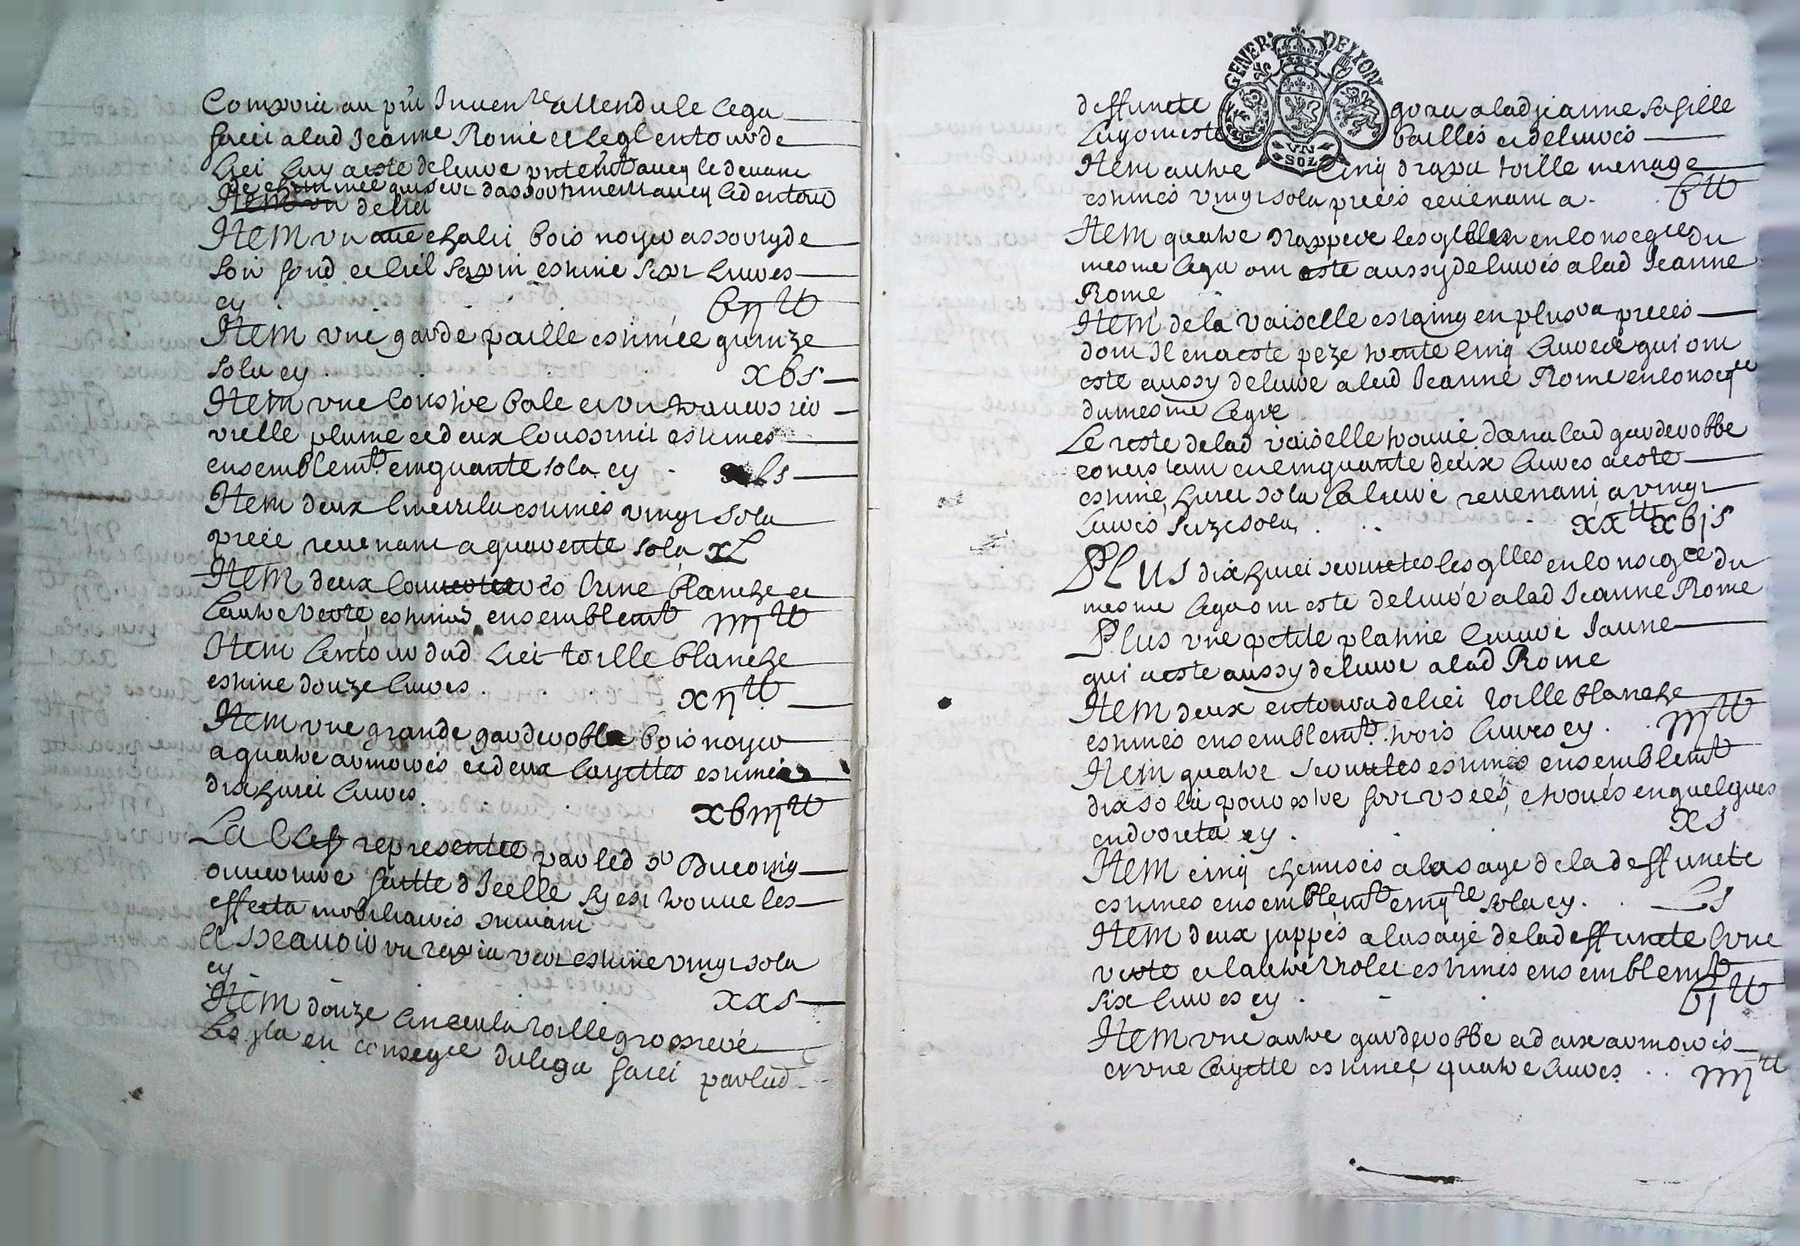 Compris au pnt Inventre attendu le lega
faict a lad Jeanne Rome et legl entour de
lict luy a esté delivré pntemt avecq le devant
de cheminée qui sert dassortiment avecq led entour
de lict
Item un chalict bois noyer assorty de
son fond et ciel sapin estimé sept livres
cy bijtt
Item une garde paille estimée quinze
sols cy xbs
Item une coistre bale et un traversier
vielle plume et deux coussinet estimes
ensemblemt cinquante sols cy Ls
Item deux linceuls estimés vingt sols
piece revenant a quarente sols xL
Item deux couvertes lune blanche et
lautre verte estimés ensemblemt iiijtt
Item lentour dud lict toille blanche
estimé douze livres xijtt
Item une grande garderobbe bois noyer
a quatre armoires et deux layettes estimée
dix huict livres xbiijtt
La clef representée par led sr Ducoing
ouverture faitte dicelle sy est trouvé les
effects mobiliaires suivant
Et Scavoir un tapis vert estimé vingt sols
cy xxs
Item douze linceuls toille grossiere
Les qls en conseqce du lega faict par lad
GENER DE LION
VN SOL
deffuncte a lad Jeanne sa fille
luy ont esté bailles et delivrés
Item autre cinq draps toille menage
estimés vingt sols pieces revenant a btt
Item quatre nappes lesqlles en conseqce du
mesme lega ont esté aussy delivrés a lad Jeanne
Rome
Item de la vaiselle estaing en plusrs pieces
dont il en a esté pezé trente cinq livres qui ont
esté aussy delivré a lad Jeanne Rome en conseqce
du mesme legat
Le reste de lad vaiselle trouvé dans lad garderobbe
concistant en cinquante deux livres a esté
estimé huict sols la livre revenant a vingt
livres seize sols xxtt xbjs
Plus dix huict serviettes lesqlles en conseqce du
mesme lega ont esté delivré a lad Jeanne Rome
Plus une petite platine cuivre Jaune
qui a esté aussy delivré a lad Rome
Item deux entours de lict toille blanche
estimés ensemblemt trois livres cy iijtt
Item quatre serviettes estimés ensemblemt
dix sols pour estre fort usées, et troués en quelques
endroits cy xs
Item cinq chemises a lusage de la deffuncte
estimes ensemblemt cinqte sols cy Ls
Item deux juppes a lusage de lad deffuncte lune
verte et lautre violet estimés ensemblemt
six livres cy bjtt
Item une autre garderobbe a deux armoires
et une layette estimée quatre livres iiijtt